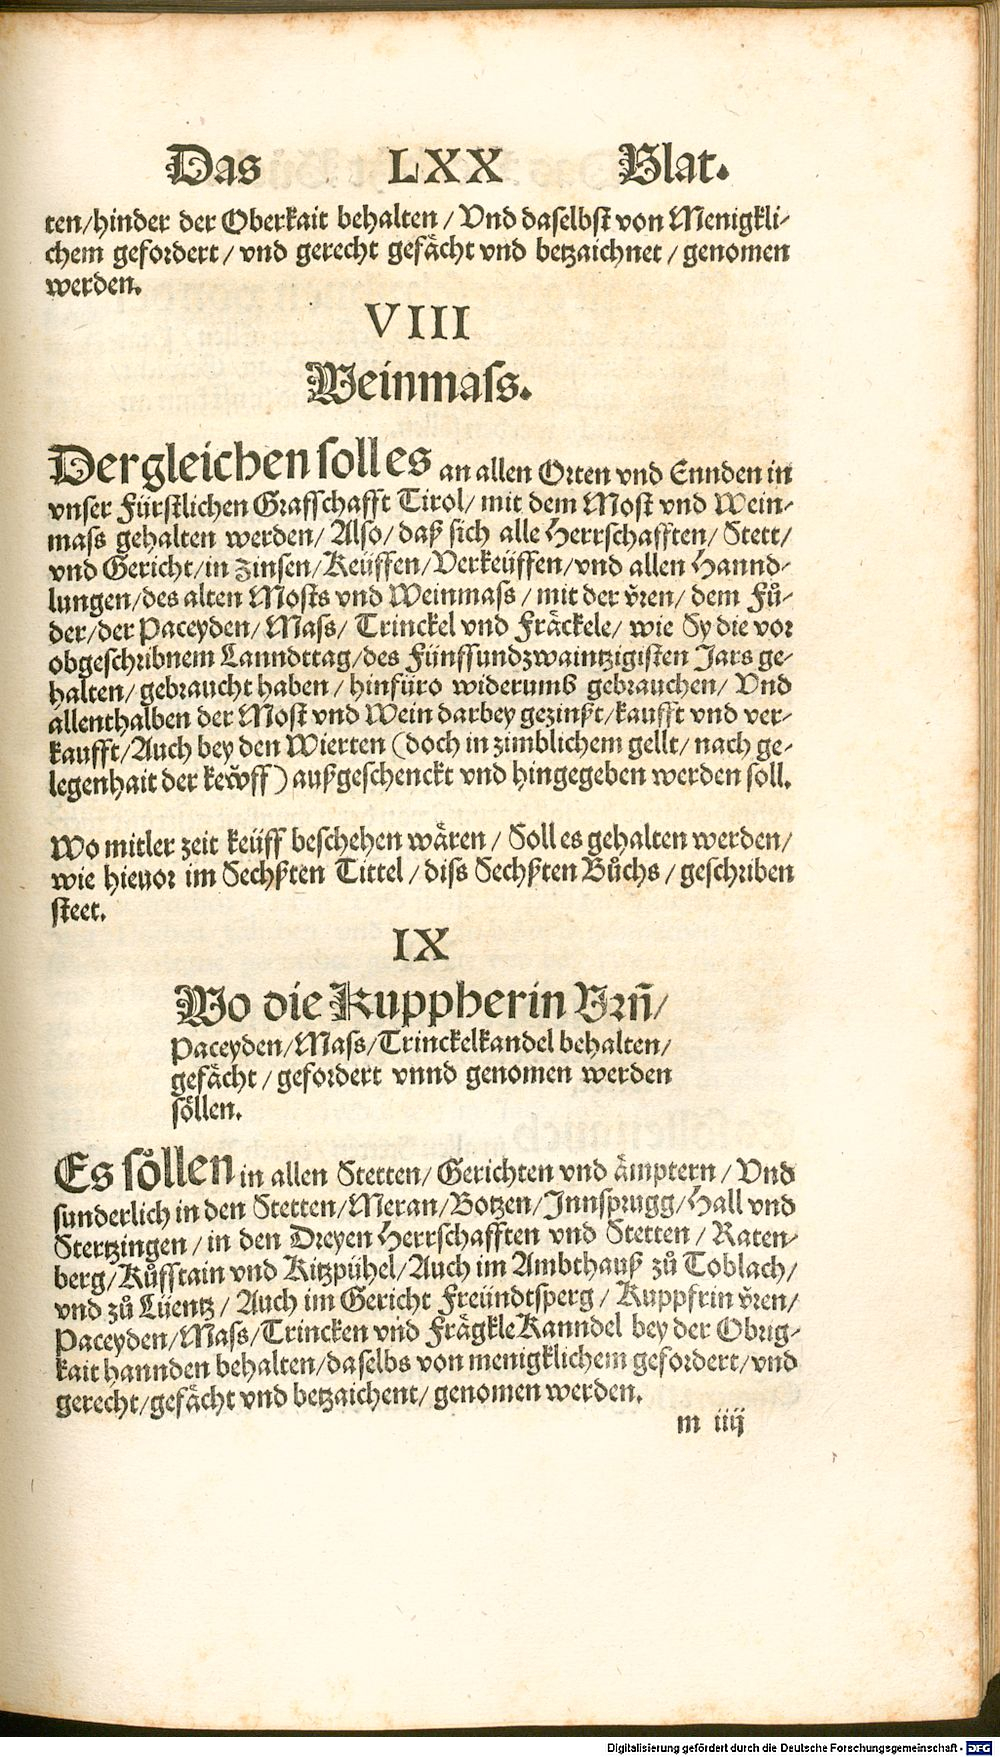 Das LXX Blat.
ten/hinder der Oberkait behalten / Vnd daselbst von Menigkli-
chem gefordert / vnd gerecht gefächt vnd betzaichnet / genomen
werden.
VIII
Weinmass.
Dergleichen soll es an allen Orten vnd Ennden in
vnser Fürstlichen Grafschafft Tirol/ mit dem Most vnd Wein-
mass gehalten werden/ Also/ daß sich alle Herrschafften/ Stett/
vnd Gericht/in Zinsen/Keüffen/Verkeüffen/vnd allen Hannd-
lungen/des alten Mosts vnd Weinmass / mit der v̈ren/ dem Fů-
der/der Paceyden/ Mass/ Trinckel vnd Fräckele/ wie Sy die vor
obgeschribnem Lanndttag/des Fünffundzwaintzigisten Jars ge-
halten/ gebraucht haben / hinfüro widerumb gebrauchen/ Vnd
allenthalben der Most vnd Wein darbey gezinßt/kaufft vnd ver-
kaufft/Auch bey den Wierten (doch in zimblichem gellt/ nach ge-
legenhait der keẅff) außgeschenckt vnd hingegeben werden soll.
Wo mitler zeit keüff beschehen wären / Soll es gehalten werden/
wie hieuor im Sechßten Tittel / diss Sechßten Bůchs / geschriben
steet.
IX
Wo die Kuppherin Vrn̄/
Paceyden/Mass/Trinckelkandel behalten/
gefächt / gefordert vnnd genomen werden
söllen.
Es söllen in allen Stetten/ Gerichten vnd ämptern / Vnd
sunderlich in den Stetten/Meran/Botzen/Jnnsprugg/Hall vnd
Stertzingen / in den Dreyen Herrschafften vnd Stetten / Raten-
berg/Kůfstain vnd Kitzpühel/Auch im Ambthauß zů Toblach/
vnd zů Lüentz / Auch im Gericht Freündtsperg / Kuppfrin v̈ren/
Paceyden/Mass/Trincken vnd Frägkle Kanndel bey der Obrig-
kait hannden behalten/daselbs von menigklichem gefordert/vnd
gerecht/gefächt vnd betzaichent/ genomen werden.
m iiij
Digitalisierung gefördert durch die Deutsche Forschungsgemeinschaft - DFG